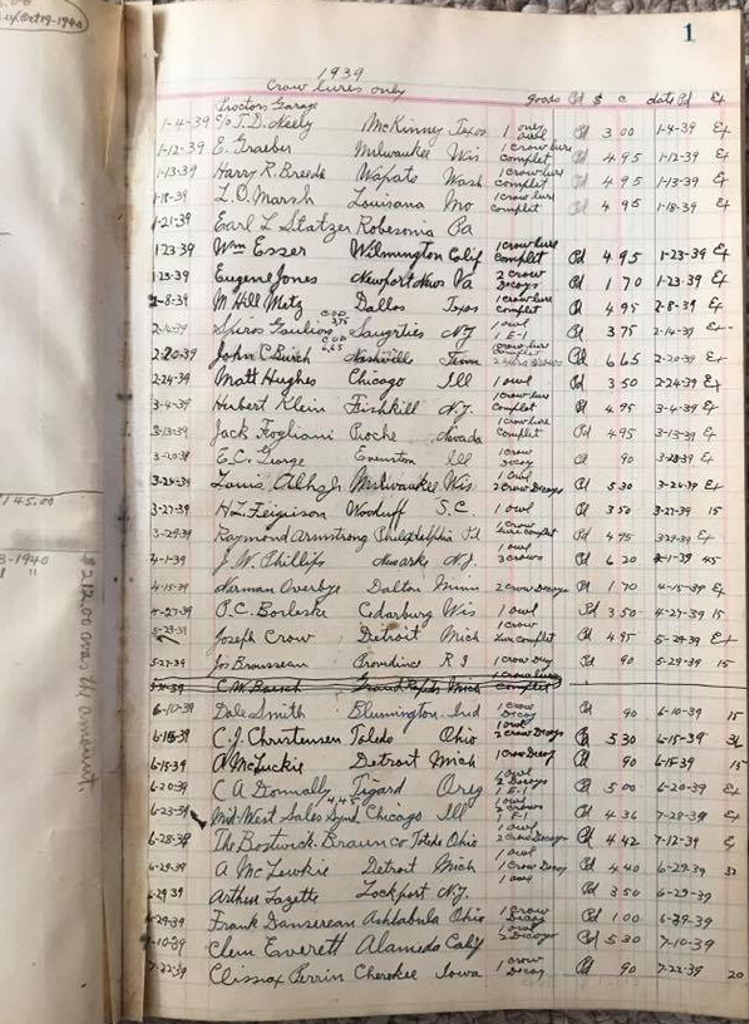 1
1939
Crow lures only
goods Pd $ c date Pd Ex
Proctors Garage
1-4-39 c/o J.D. Neely McKinney Texas 1 only Pd 3 00 1-4-39 Ex
1-12-39 E. Graeber Milwaukee Wis 1 crow lure complet Pd 4 95 1-12-39 Ex
1-13-39 Harry R. Breede Wapato Wash 1 crow lure complet Pd 4 95 1-13-39 Ex
1-18-39 L.O. Marsh Louisiana Mo 1 crow lure complet Pd 4 95 1-18-39 Ex
1-21-39 Earl L Statzer Robesonia Pa
1-23-39 Wm Esser Wilmington Calif 1 crow lure complet Pd 4.95 1-23-39 Ex
1-23-39 Eugene Jones Newport News Va 2 crow Decoys Pd 1 70 1-23-39 Ex
2-8-39 M Hill Metz Dallas Texas 1 crow lure complet Pd 4 95 2-8-39 Ex
2-14-39 Spiros C.O.D 3.75 Saugrties N.Y 1 owl 1 E-1 Pd 3 75 2-14-39 Ex
2-20-39 John C Burch C.O.D 6.65 Nashville Tenn 1 crow lure complet Pd 6 65 2-20-39 Ex
2-24-39 Matt Hughes Chicago Ill 1 owl Pd 3 50 2-24-39 Ex
3-4-39 Herbert Klein Fishkill N.Y. 1 crow lure complet Pd 4 95 3-4-39 Ex
3-13-39 Jack Fogliani Pioche Nevada 1 crow lure complet Pd 4 95 3-13-39 Ex
3-20-39 E.C. George Evenston Ill 1 crow Decoy Pd 90 Ex
3-24-39 Louis Milwaukee Wis 1 owl 2 crow Decoys Pd 5 30 3-24-39 Ex
3-27-39 H.L. Feiguson Woodruff S.C. 1 owl Pd 3 50 3-27-39 15
3-29-39 Raymond Armstrong Philadelphia Pa 1 crow lure complet Pd 4 95 3-29-39 Ex
4-1-39 J.W. Phillips Newark N.J. 1 owl 3 crows Pd 6 20 4-1-39 45
4-15-39 Norman Overbye Dalton Minn 2 crow Decoys Pd 1 70 4-15-39 Ex
4-27-39 O.C. Borleske Cedarburg Wis 1 owl Pd 3 50 4-27-39 15
5-29-39 Joseph Crow Detroit Mich 1 crow lure complet Pd 4 95 5-29-39 Ex
5-27-39 Jos Brousseau Providince R I 1 crow Decoy Pd 90 5-29-39 15
C.W. Bausch Grand Rapids Mich 1 crow lure complet
6-10-39 Dale Smith Blumington Ind 1 crow Decoy Pd 90 6-10-39 15
6-15-39 C.J. Christensen Toledo Ohio 1 owl 2 crow Decoys Pd 5 30 6-15-39
6-15-39 A McLuckie Detroit Mich 1 crow Decoy Pd 90 6-15-39 15
6-20-39 C A Donnally Tigard Oreg 1 owl 2 Decoys 1 E-1 Pd 5 00 6-20-39 Ex
6-23-39 Mid-West Sales Synd 4.45 Chicago Ill 1 owl 2 crows 1 E-1 Pd 4 36 7-28-39 Ex
6-28-39 The Bostwick-Braun co Toledo Ohio 1 owl 2 crow Decoys Pd 4 42 7-12-39
6-29-39 A McLuwkie Detroit Mich 1 owl 1 crow Decoy Pd 4 40 6-29-39 32
6-29-39 Arthur Lazette Lockport N.Y. 1 owl Pd 3 50 6-29-39
6-29-39 Frank Dansereau Ashtabula Ohio 1 crow Decoy Pd 1 00 6-29-39
7-10-39 Clem Everett Alameda Calif 1 owl 2 Decoys Pd 5 30 7-10-39
7-22-39 Perrin Cherokee Iowa 1 crow Decoy Pd 90 7-22-39 20
Oct 19-1940
145.00
3-1940
$212.00 was the amount.